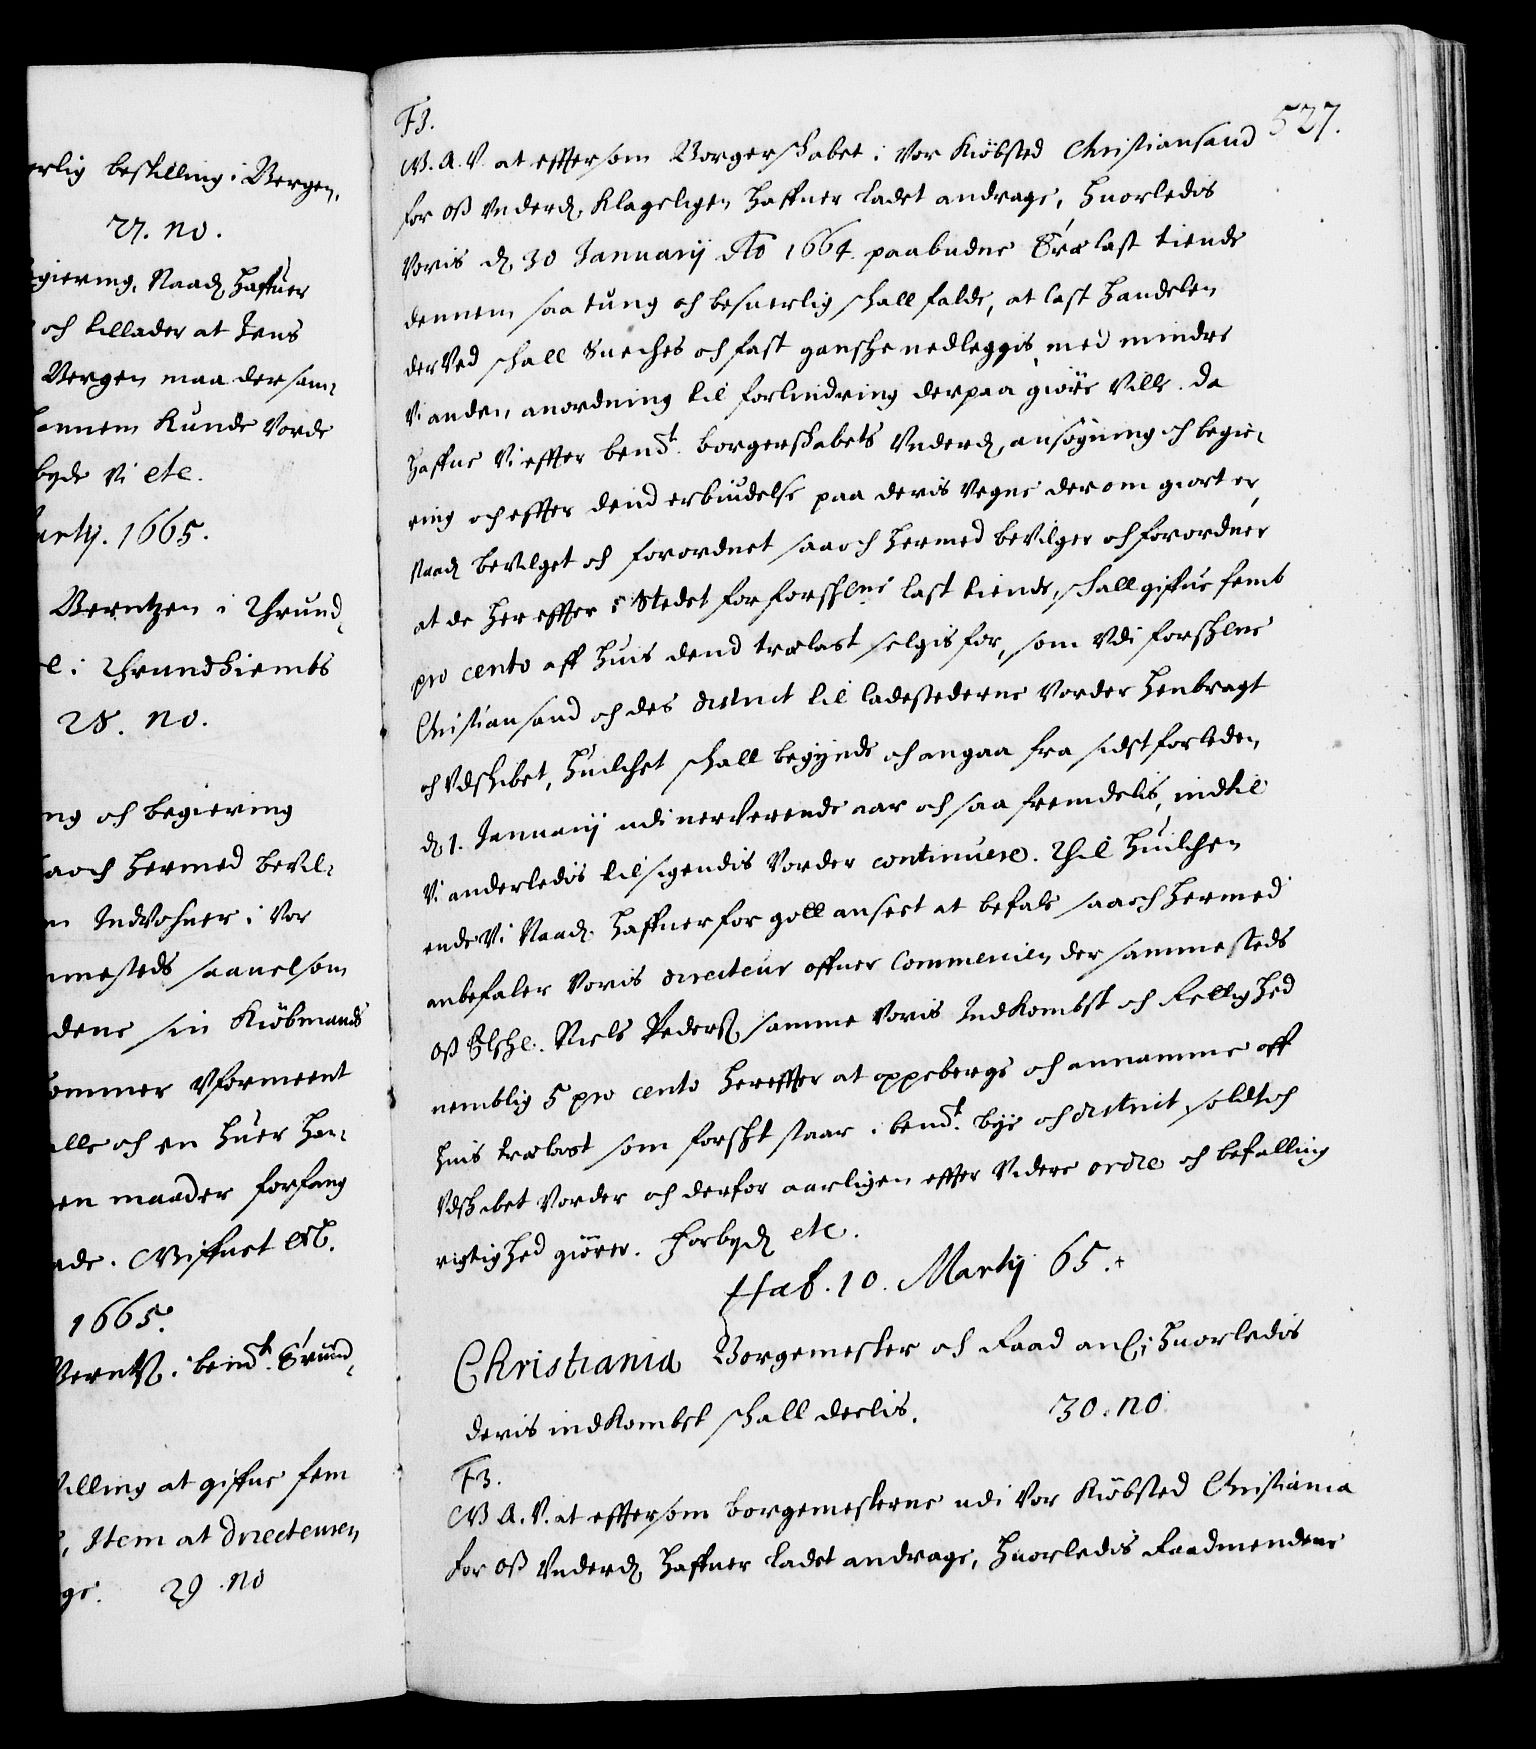 erlig bestilling i Bergen,
27. no.
giering, Naad haffuer
och tillader at Jens
Bergen maa der sam-
hannem kunde vorde
byde Vi etc.
artij. 1665.
Berntzen i Thrund-
e i Thrundhiembs
28. no.
ng och begiering
saa och hermed bevil-
m Indvohner i Vor
mmesteds saauelsom
dene sin Kiöbmands
kommer Vformeent
alle och en huer her-
en maader forfang
ade. Giffuet etc.
1665.
Berntz. i bemt. Trund-
villing at giffue fem
, Item at Directeuren
ge. 29. no
527.
F3.
G.A.V. at effter som Borgerskabet i Vor Kiöbsted Christiansand
for oß Vnderd. klageligen haffuer ladet andrage, huorledis
Voris d. 30 Januarij Ao 1664. paabudne Træ last tiende
dennem saa tung och besuerlig schall falde, at last handelen
der Ved schall suechis och fast gansche nedleggis, med mindre
Vi anden anordning til forlindring derpaa giöre Ville. da
haffue Vi effter bemt. borgerskabets Vnderd. ansögning och begie-
ring och effter dend erbiudelse paa deris Vegne derom giort er
Naad. bevilget och forordnet saa och hermed bevilger och forordner
at de her effter i Stedet for forschne last tiende, schall giffue femb
pro cento aff huis dend trælast selgis for, som Vdi forschne
Christiansand och des district til ladestederne Vorder henbragt
och Vdschibet, huilchet schall begynde och angaa fra sidst forleden
d. 1. Januarij udi nerverende aar och saa fremdelis, indtil
Vi anderledis tilsigendis Vorder continuere. Thil huilchen
ende Vi Naad. haffuer for gott anseet at befale saa och hermed
anbefaler Voris directeur offuer Commercien der sammesteds
oß Elschl. Niels Pederß. samme Voris Indkombst och Rettighed
nemblig 5 pro cento hereffter at oppeberge och annamme aff
huis trælast som forscht staar i bemt. bÿe och district soldt och
Vdschibet Vorder och derfor aarligen effter Videre ordre och befalling
rigtighed giörer. Forbyd. etc.
Haf. 10. Martij 65.
Christiania Borgemester och Raad anl; huorledis
deris indkombst schall deelis. 30. no
F3.
G A. V. at effter som borgemesterne udi Vor Kiöbsted Christiania
for oß Vnderd. haffuer ladet andrage, huorledis Raadmendene